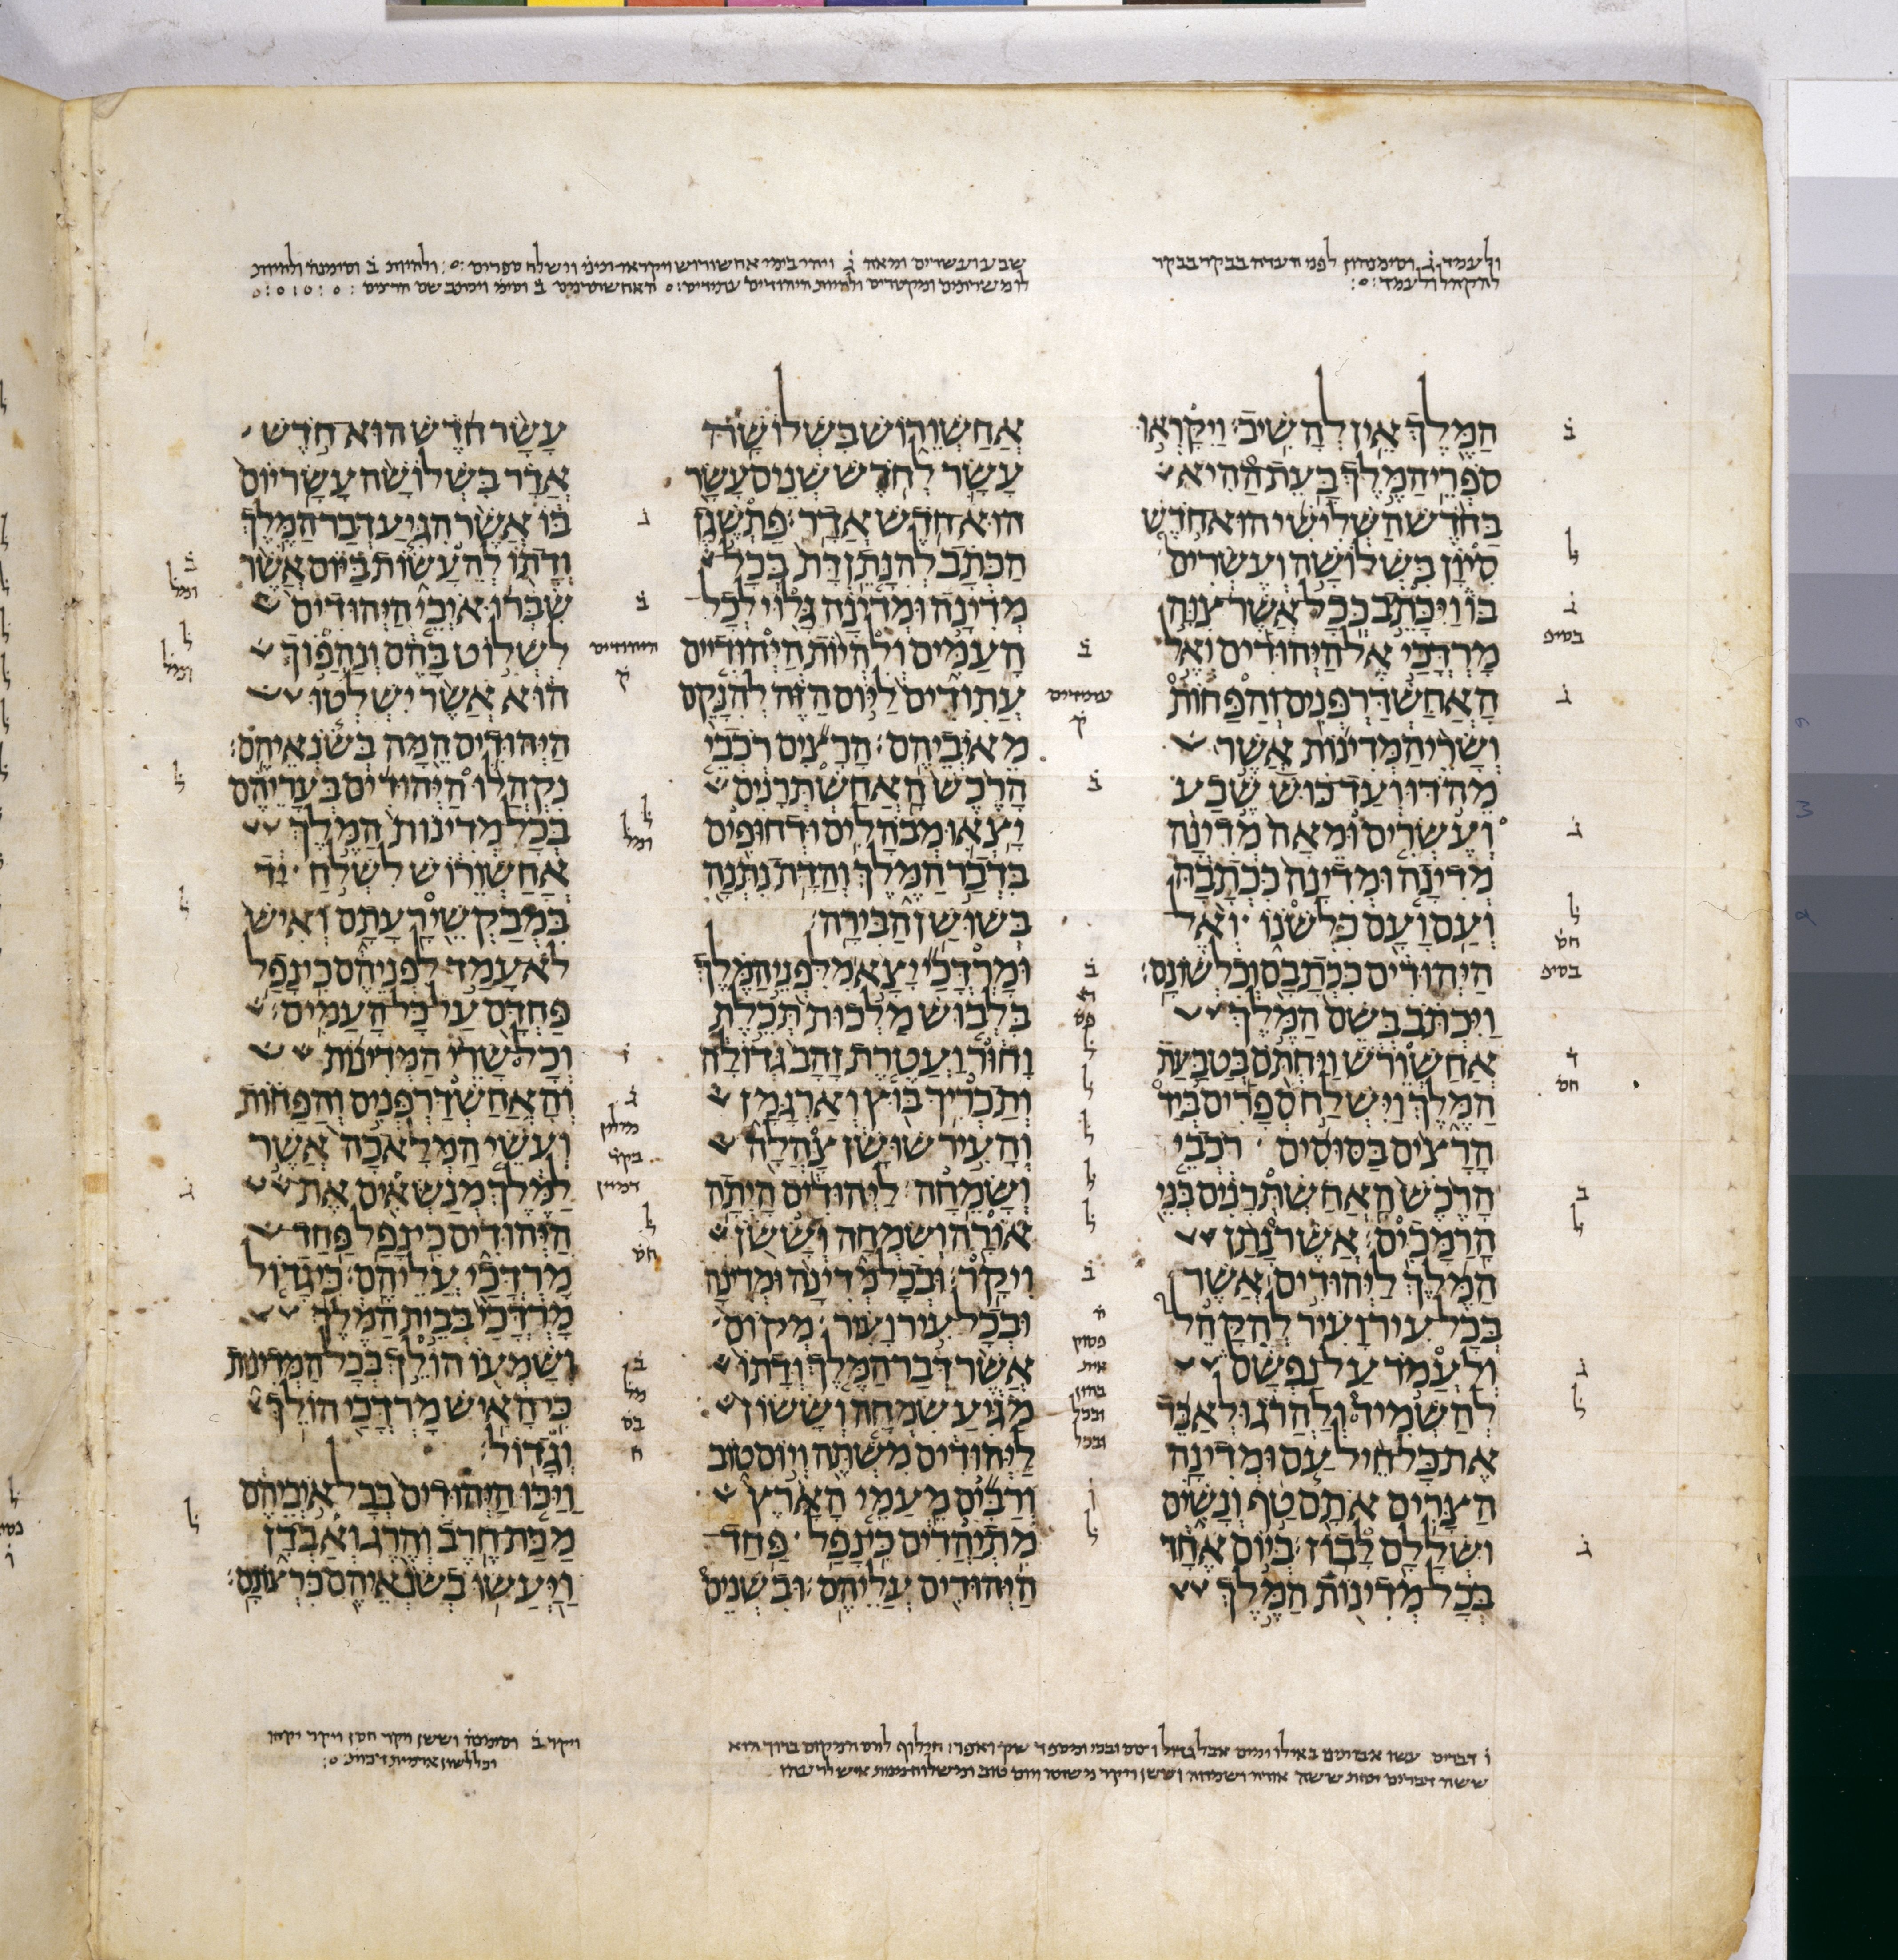 ולעמד ג וסימנהון לפני העדה בבקר בבקר
להקהל ולעמד
שבע ועשרים ומאה ג ויהי בימי אחשורוש ויקראו וישלח ספרים ולהיות ב וסימנה ולהיות
לו משרתים ומקטרים ולהיות היהודים עתידים האחשתרנים ב וסימ ויכתב בשם
המלך אין להשיב׃ ויקראו
ספרי המלך בעת ההיא
בחדש השלישי הוא חדש
סיון בשלושה ועשרים
בו ויכתב ככל אשר צוה
מרדכי אל היהודים ואל
האחשדרפנים והפחות
ושרי המדינות אשר
מהדו ועד כוש שבע
ועשרים ומאה מדינה
מדינה ומדינה ככתבה
ועם ועם כלשנו ואל
היהודים ככתבם וכלשונם׃
ויכתב בשם המלך
אחשורש ויחתם בטבעת
המלך וישלח ספרים ביד
הרצים בסוסים רכבי
הרכש האחשתרנים בני
הרמכים׃ אשר נתן
המלך ליהודים אשר
בכל עיר ועיר להקהל
ולעמד על נפשם
להשמיד ולהרג ולאבד
את כל חיל עם ומדינה
הצרים אתם טף ונשים
ושללם לבוז׃ ביום אחד
בכל מדינות המלך
אחשורוש בשלושה
עשר לחדש שנים עשר
הוא חדש אדר׃ פתשגן
הכתב להנתן דת בכל
מדינה ומדינה גלוי לכל
העמים ולהיות היהודיים
עתודים ליום הזה להנקם
מאיביהם׃ הרצים רכבי
הרכש האחשתרנים
יצאו מבהלים ודחופים
בדבר המלך והדת נתנה
בשושן הבירה׃
ומרדכי יצא מלפני המלך
בלבוש מלכות תכלת
וחור ועטרת זהב גדולה
ותכריך בוץ וארגמן
והעיר שושן צהלה
ושמחה׃ ליהודים היתה
אורה ושמחה וששן
ויקר׃ ובכל מדינה ומדינה
ובכל עיר ועיר מקום
אשר דבר המלך ודתו
מגיע שמחה וששון
ליהודים משתה ויום טוב
ורבים מעמי הארץ
מתיהדים כי נפל פחד
היהודים עליהם׃ ובשנים
עשר חדש הוא חדש
אדר בשלושה עשר יום
בו אשר הגיע דבר המלך
ודתו להעשות ביום אשר
שברו איבי היהודים
לשלוט בהם ונהפוך
הוא אשר ישלטו
היהודים המה בשנאיהם׃
נקהלו היהודים בעריהם
בכל מדינות המלך
אחשורוש לשלח יד
במבקשי רעתם ואיש
לא עמד לפניהם כי נפל
פחדם על כל העמים׃
וכל שרי המדינות
והאחשדרפנים והפחות
ועשי המלאכה אשר
למלך מנשאים את
היהודים כי נפל פחד
מרדכי עליהם׃ כי גדול
מרדכי בבית המלך
ושמעו הולך בכל המדינות
כי האיש מרדכי הולך
וגדול׃
ויכו היהודים בכל איביהם
מכת חרב והרג ואבדן
ויעשו בשנאיהם כרצונם׃
ששה דברים אורה ושמחה וששן ויקר משתה ויום טוב ומשלוח מנות איש לרעהו
ויקר ב וסימנה וששן ויקר ויקר